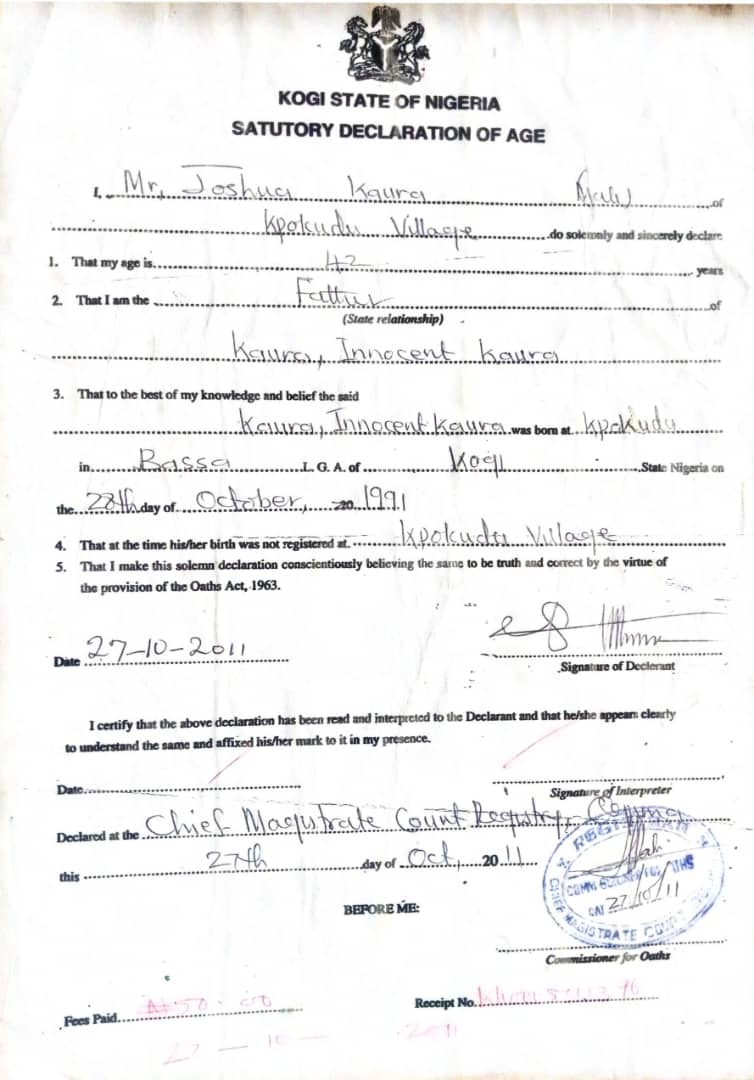 KOGI STATE OF NIGERIA
SATUTORY DECLARATION OF AGE
I, Mr, Joshua Kaura of
Kpokudu Village do solemnly and sincerely declare
1. That my age is 42 years
2. That I am the Father of
(State relationship)
Kaura, Innocent Kaura
3. That to the best of my knowledge and belief the said
Kaura, Innocent Kaura was born at Kpokudu
in Bassa L.G.A. of Kogi State Nigeria on
the 28th day of October, 20 1991
4. That at the time his/her birth was not registered at. Kpokudu Village
5. That I make this solemn declaration conscientiously believing the same to be truth and correct by the virtue of
the provision of the Oaths Act, 1963.
Date 27-10-2011
Signature of Declerant
I certify that the above declaration has been read and interpreted to the Declarant and that he/she appears clearly
to understand the same and affixed his/her mark to it in my presence.
Date
Signature of Interpreter
Declared at the Chief Magistrate Court Registry,
this 27th day of Oct, 20 11
CHIEF MAGISTRATE
27/10/11
BEFORE ME:
Commissioner for Oaths
Fees Paid ₦50.00
Receipt No.
27-10-2011